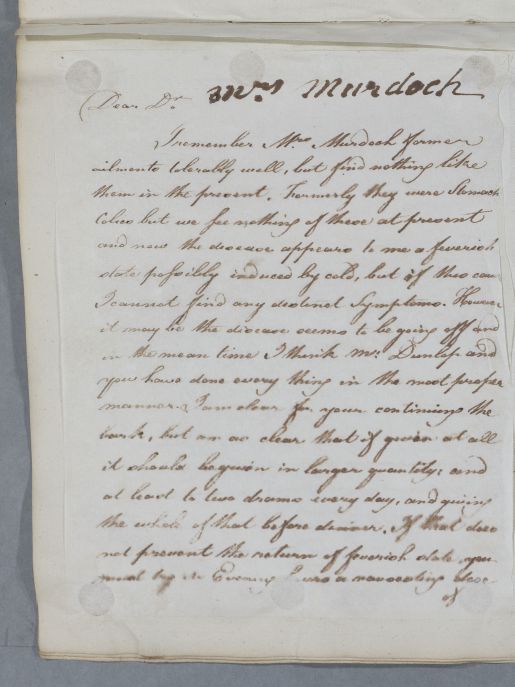 Mrs Murdoch
Dear Dr.
I remember Mrs Murdoch former
ailments tolerably well, but find nothing like
them in the present. Formerly they were Stomach
Colics but we see nothing of these at present
and now the disease appears to me a feverish
state possibly induced by cold, but of this can
I cannot find any distinct Symptoms. However
it may be the disease seems to be going off and
in the mean time I think Mr. Dunlap and
you have done every thing in the most proper
manner. I am clear for your continuing the
bark, but am as clear that if given at all
it should be given in larger quantity; and
at least to two drams every day, and giving
the whole of that before dinner. If that does
not prevent the return of feverish state you
must try Evening a nauseating dose
of